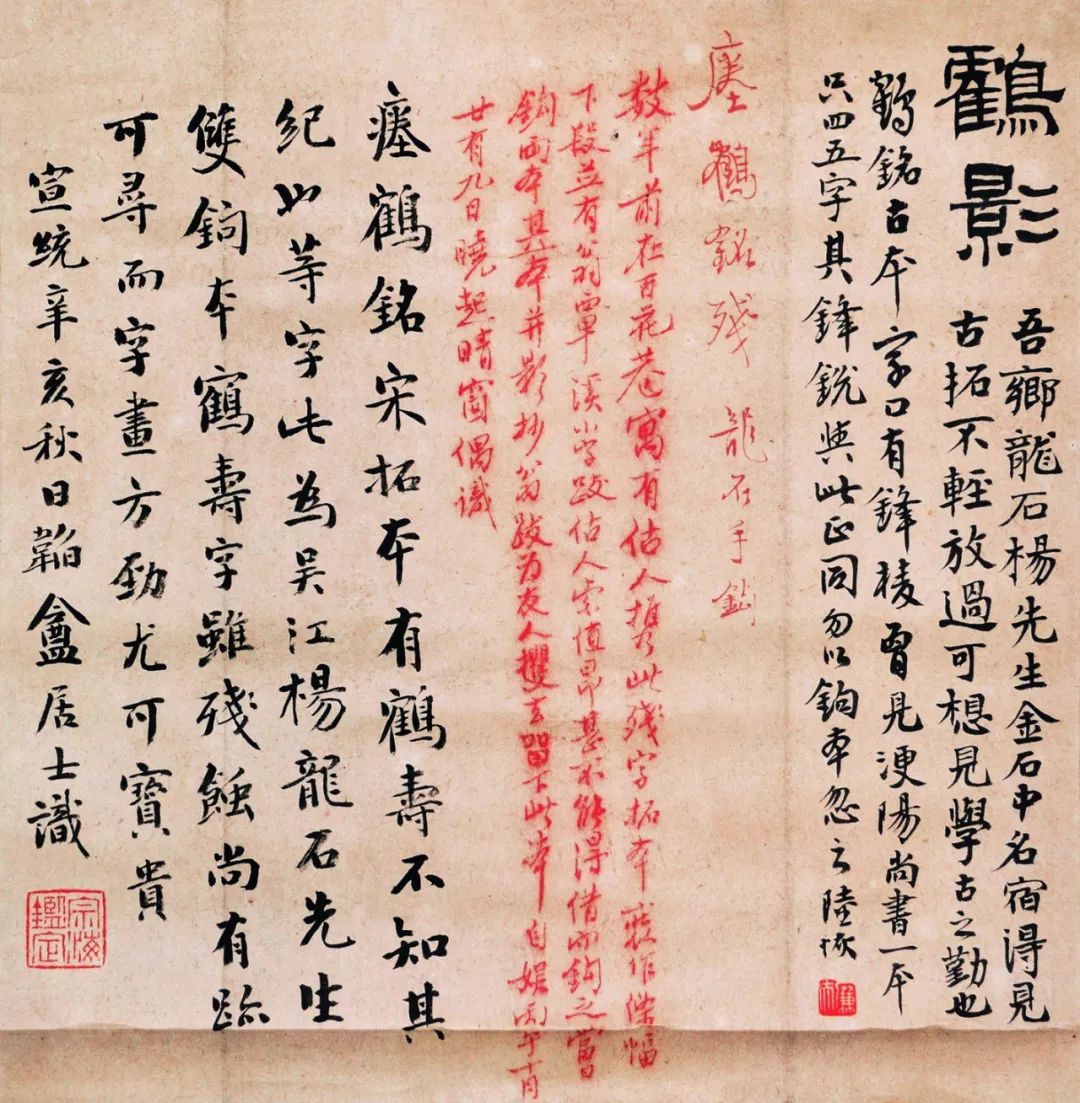 鶴影
吾鄉龍石楊先生金石中名宿得見
古拓不輕放過可想見學古之勤也
鶴銘古本字口有鋒棱曾見浭陽尚書一本
只四五字其鋒銳與此正同勿以鉤本忽之陸恢
瘞鶴銘殘 龍石手鉤
數年前在百花巷寓有估人攜此殘字拓本裝作條幅
下段並有翁覃溪小字跋估人索值昂甚不能得借而鉤之當
鉤兩本其一本并影抄翁跋為友人攫去留下此本自娛丙午十月
廿有九日曉起晴窗偶識
瘞鶴銘宋拓本有鶴壽不知其
紀山等字此為吳江楊龍石先生
雙鉤本鶴壽字雖殘蝕尚有跡
可尋而字畫方勁尤可寶貴
宣統辛亥秋日韜盦居士識